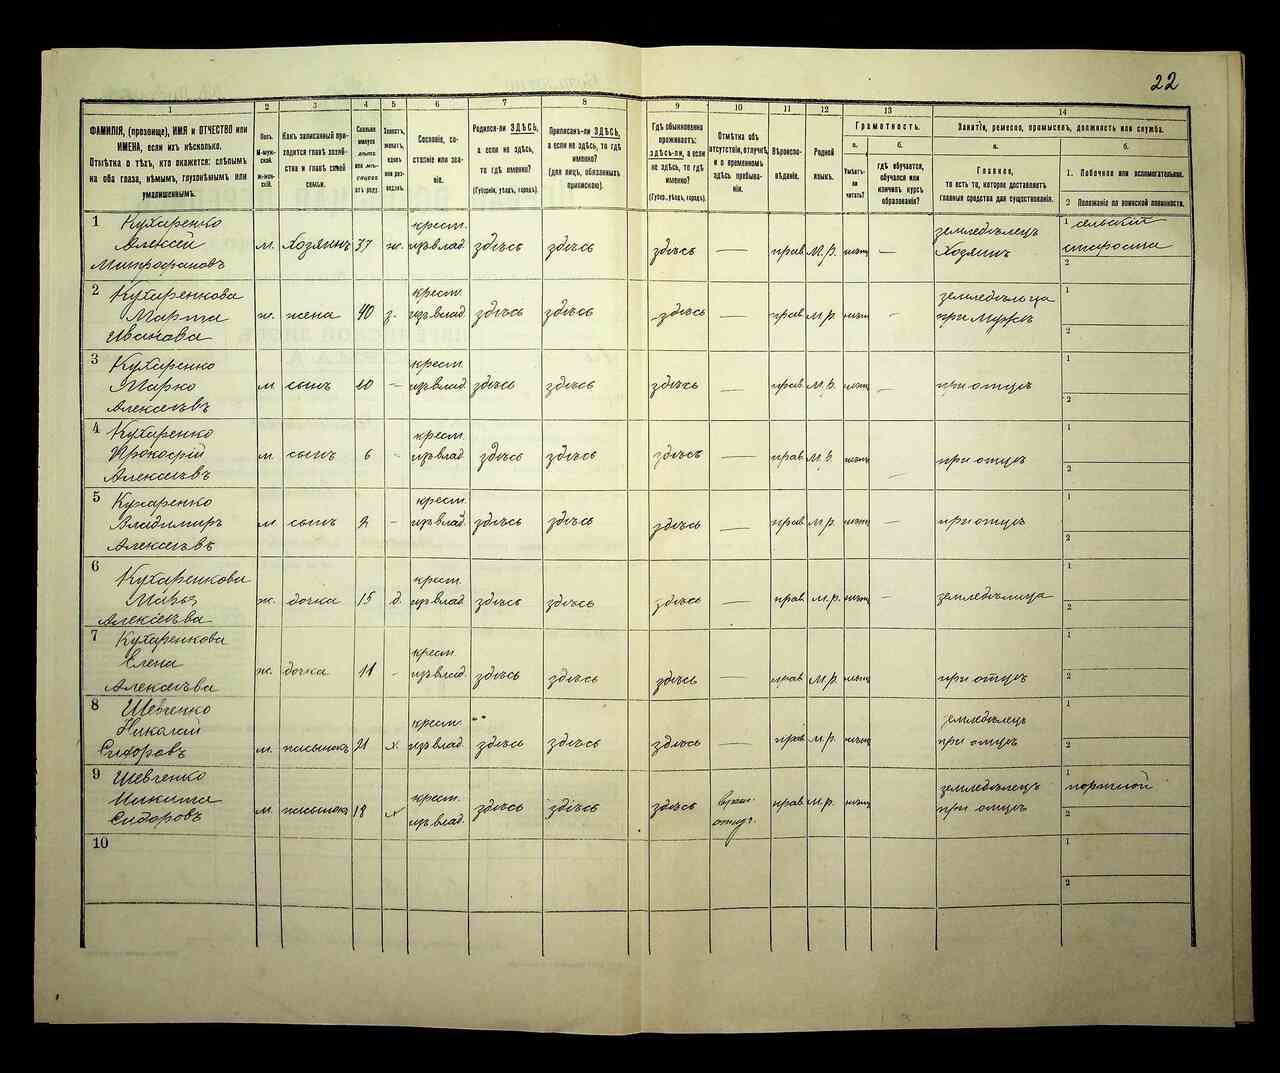 22
1 2 3 4 5 6 7 8 9 10 11 12 13 14
ФАМИЛІЯ, (прозвище), ИМЯ и ОТЧЕСТВО или
ИМЕНА, если ихъ нѣсколько.
Отмѣтка о тѣхъ, кто окажется: слѣпымъ
на оба глаза, нѣмымъ, глухонѣмымъ или
умалишеннымъ.
Полъ.
М-мужской.
ж-женскій.
Какъ записанный приходится главѣ хозяйства и главѣ своей семьи.
Сколько минуло лѣтъ или мѣсяцевъ отъ роду?
Холостъ, женатъ, вдовъ или разведенъ.
Сословіе, состояніе или званіе.
Родился-ли ЗДѢСЬ,
а если не здѣсь,
то гдѣ именно?
(Губернія, уѣздъ, городъ).
Приписанъ-ли ЗДѢСЬ,
а если не здѣсь, то гдѣ
именно?
(для лицъ, обязанныхъ
припискою).
Гдѣ обыкновенно
проживаетъ:
здѣсь-ли, а если
не здѣсь, то гдѣ
именно?
(Губер., уѣздъ, городъ).
Отмѣтка объ
отсутствіи, отлучкѣ
и о временномъ
здѣсь пребываніи.
Вѣроисповѣданіе.
Родной
языкъ.
Грамотность.
а.
Умѣетъ-ли
читать?
б.
гдѣ обучается,
обучался или
кончилъ курсъ
образованія?
Занятія, ремесло, промыселъ, должность или служба.
а.
Главное,
то есть то, которое доставляетъ
главныя средства для существованія.
б.
1. Побочное или вспомогательное.
2 Положеніе по воинской повинности.
1 Кухаренко
Алексѣй
Митрофановъ
м. Хозяинъ 37 ж. крест. изъ влад. здѣсь здѣсь здѣсь — прав. М.Р. нѣтъ —
земледѣлецъ
Хозяинъ
1 сельскій
староста
2
2 Кухаренкова
Марта
Иванова
ж. жена 40 з. крест. изъ влад. здѣсь здѣсь здѣсь — прав. м.р. нѣтъ -
земледѣлица
при мужѣ
1
2
3 Кухаренко
Марко
Алексѣевъ
м сынъ 10 - крест. изъ влад. здѣсь здѣсь здѣсь — прав. м.р. нѣтъ - при отцѣ
1
2
4 Кухаренко
Прокофій
Алексѣевъ
м. сынъ 6 - крест. изъ влад. здѣсь здѣсь здѣсь — прав. м.р. нѣтъ - при отцѣ
1
2
5 Кухаренко
Владимиръ
Алексѣевъ
м сынъ 2 - крест. изъ влад. здѣсь здѣсь здѣсь — прав. м.р. нѣтъ - при отцѣ
1
2
6 Кухаренкова
Марья
Алексѣева
ж. дочка 15 д. крест. изъ влад. здѣсь здѣсь здѣсь — прав. м.р. нѣтъ - земледѣлица
1
2
7 Кухаренкова
Елена
Алексѣева
ж. дочка 11 - крест. изъ влад. здѣсь здѣсь здѣсь — прав. м.р. нѣтъ при отцѣ
1
2
8 Шевченко
Николай
Сидоровъ
м. пасынокъ 21 х. крест. изъ влад. здѣсь здѣсь здѣсь — прав. м.р. нѣтъ
земледѣлецъ
при отцѣ
1
2
9 Шевченко
Никита
Сидоровъ
м. пасынокъ 18 х крест. изъ влад. здѣсь здѣсь здѣсь прав. м.р. нѣтъ
земледѣлецъ
при отцѣ
1 портной
2
10
1
2